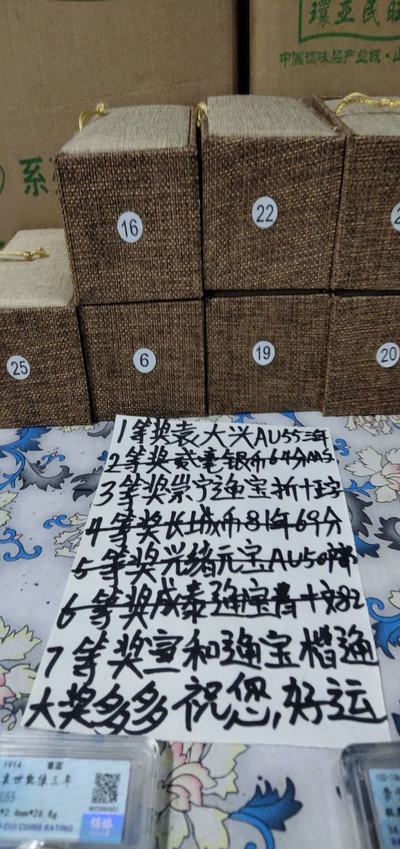 環亚民旺
中国调味品产业城·山
系
16
22
2
25
6
19
20
1等奖袁大头AU55三年
2等奖贰毫银币64分MS
3等奖崇宁通宝折十
4等奖长城币81年69分
5等奖光绪元宝AU50
6等奖咸泰通宝背十文82
7等奖宣和通宝楷通
大奖多多祝您,好运
1914 壹圆
袁世凯像三年
*2.4mm*26.8g
CUI COINS RATING